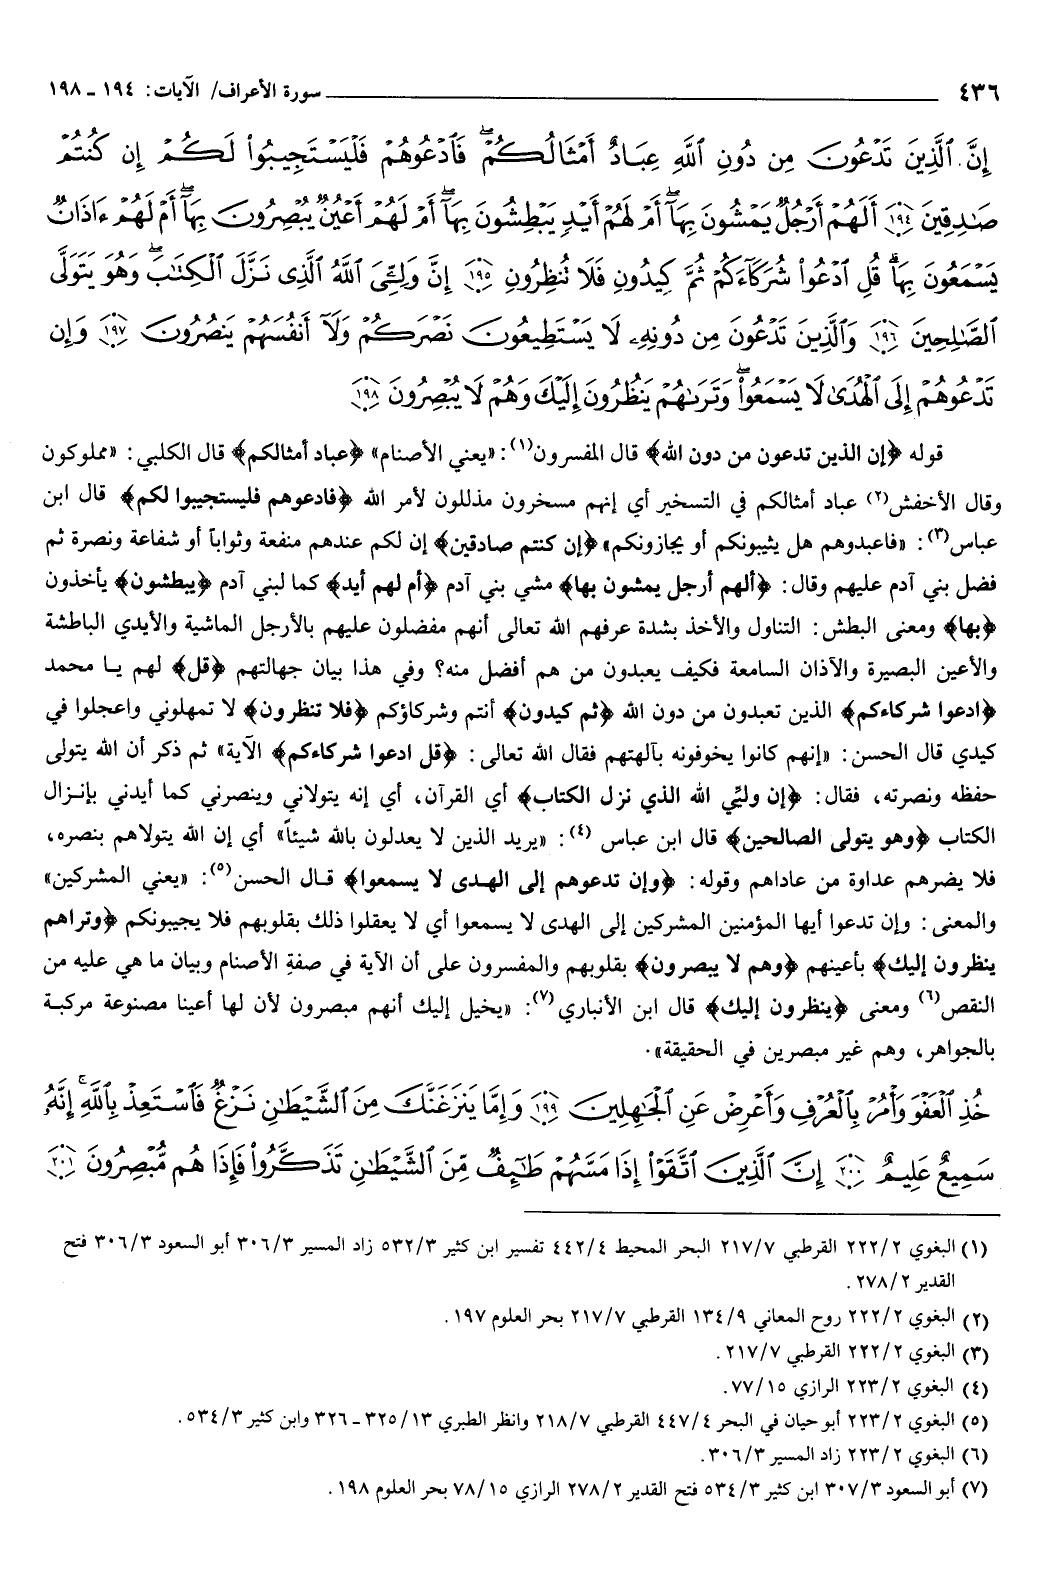 ٤٣٦ سورة الأعراف/ الآيات: ١٩٤ ـ ١٩٨
إِنَّ ٱلَّذِينَ تَدۡعُونَ مِن دُونِ ٱللَّهِ عِبَادٌ أَمۡثَالُكُمۡۖ فَٱدۡعُوهُمۡ فَلۡيَسۡتَجِيبُواْ لَكُمۡ إِن كُنتُمۡ
صَٰدِقِينَ ١٩٤ أَلَهُمۡ أَرۡجُلٞ يَمۡشُونَ بِهَآۖ أَمۡ لَهُمۡ أَيۡدٖ يَبۡطِشُونَ بِهَآۖ أَمۡ لَهُمۡ أَعۡيُنٞ يُبۡصِرُونَ بِهَآۖ أَمۡ لَهُمۡ ءَاذَانٞ
يَسۡمَعُونَ بِهَاۗ قُلِ ٱدۡعُواْ شُرَكَآءَكُمۡ ثُمَّ كِيدُونِ فَلَا تُنظِرُونِ ١٩٥ إِنَّ وَلِـِّۧيَ ٱللَّهُ ٱلَّذِي نَزَّلَ ٱلۡكِتَٰبَۖ وَهُوَ يَتَوَلَّى
ٱلصَّٰلِحِينَ ١٩٦ وَٱلَّذِينَ تَدۡعُونَ مِن دُونِهِۦ لَا يَسۡتَطِيعُونَ نَصۡرَكُمۡ وَلَآ أَنفُسَهُمۡ يَنصُرُونَ ١٩٧ وَإِن
تَدۡعُوهُمۡ إِلَى ٱلۡهُدَىٰ لَا يَسۡمَعُواْۖ وَتَرَىٰهُمۡ يَنظُرُونَ إِلَيۡكَ وَهُمۡ لَا يُبۡصِرُونَ ١٩٨
قوله ﴿إن الذين تدعون من دون الله﴾ قال المفسرون(١): «يعني الأصنام» ﴿عباد أمثالكم﴾ قال الكلبي: «مملوكون
وقال الأخفش(٢) عباد أمثالكم في التسخير أي إنهم مسخرون مذللون لأمر الله ﴿فادعوهم فليستجيبوا لكم﴾ قال ابن
عباس(٣): «فاعبدوهم هل يثيبونكم أو يجازونكم» ﴿إن كنتم صادقين﴾ إن لكم عندهم منفعة وثواباً أو شفاعة ونصرة ثم
فضل بني آدم عليهم وقال: ﴿ألهم أرجل يمشون بها﴾ مشي بني آدم ﴿أم لهم أيد﴾ كما لبني آدم ﴿يبطشون﴾ يأخذون
﴿بها﴾ ومعنى البطش: التناول والأخذ بشدة عرفهم الله تعالى أنهم مفضلون عليهم بالأرجل الماشية والأيدي الباطشة
والأعين البصيرة والآذان السامعة فكيف يعبدون من هم أفضل منه؟ وفي هذا بيان جهالتهم ﴿قل﴾ لهم يا محمد
﴿ادعوا شركاءكم﴾ الذين تعبدون من دون الله ﴿ثم كيدون﴾ أنتم وشركاؤكم ﴿فلا تنظرون﴾ لا تمهلوني واعجلوا في
كيدي قال الحسن: «إنهم كانوا يخوفونه بآلهتهم فقال الله تعالى: ﴿قل ادعوا شركاءكم﴾ الآية» ثم ذكر أن الله يتولى
حفظه ونصرته، فقال: ﴿إن وليّي الله الذي نزل الكتاب﴾ أي القرآن، أي إنه يتولاني وينصرني كما أيدني بإنزال
الكتاب ﴿وهو يتولى الصالحين﴾ قال ابن عباس (٤): «يريد الذين لا يعدلون بالله شيئاً» أي إن الله يتولاهم بنصره،
فلا يضرهم عداوة من عاداهم وقوله: ﴿وإن تدعوهم إلى الهدى لا يسمعوا﴾ قال الحسن(٥): «يعني المشركين»
والمعنى: وإن تدعوا أيها المؤمنين المشركين إلى الهدى لا يسمعوا أي لا يعقلوا ذلك بقلوبهم فلا يجيبونكم ﴿وتراهم
ينظرون إليك﴾ بأعينهم ﴿وهم لا يبصرون﴾ بقلوبهم والمفسرون على أن الآية في صفةِ الأصنام وبيان ما هي عليه من
النقص(٦) ومعنى ﴿ينظرون إليك﴾ قال ابن الأنباري(٧): «يخيل إليك أنهم مبصرون لأن لها أعينا مصنوعة مركبة
بالجواهر، وهم غير مبصرين في الحقيقة».
خُذِ ٱلۡعَفۡوَ وَأۡمُرۡ بِٱلۡعُرۡفِ وَأَعۡرِضۡ عَنِ ٱلۡجَٰهِلِينَ ١٩٩ وَإِمَّا يَنزَغَنَّكَ مِنَ ٱلشَّيۡطَٰنِ نَزۡغٞ فَٱسۡتَعِذۡ بِٱللَّهِۚ إِنَّهُۥ
سَمِيعٌ عَلِيمٌ ٢٠٠ إِنَّ ٱلَّذِينَ ٱتَّقَوۡاْ إِذَا مَسَّهُمۡ طَٰٓئِفٞ مِّنَ ٱلشَّيۡطَٰنِ تَذَكَّرُواْ فَإِذَا هُم مُّبۡصِرُونَ ٢٠١
(١) البغوي ٢/ ٢٢٢ القرطبي ٧/ ٢١٧ البحر المحيط ٤/ ٤٤٢ تفسير ابن كثير ٣/ ٥٣٢ زاد المسير ٣/ ٣٠٦ أبو السعود ٣/ ٣٠٦ فتح
القدير ٢/ ٢٧٨.
(٢) البغوي ٢/ ٢٢٢ روح المعاني ٩/ ١٣٤ القرطبي ٧/ ٢١٧ بحر العلوم ١٩٧.
(٣) البغوي ٢/ ٢٢٢ القرطبي ٧/ ٢١٧.
(٤) البغوي ٢/ ٢٢٣ الرازي ١٥/ ٧٧.
(٥) البغوي ٢/ ٢٢٣ أبو حيان في البحر ٤/ ٤٤٧ القرطبي ٧/ ٢١٨ وانظر الطبري ١٣/ ٣٢٥ ـ ٣٢٦ وابن كثير ٣/ ٥٣٤.
(٦) البغوي ٢/ ٢٢٣ زاد المسير ٣/ ٣٠٦.
(٧) أبو السعود ٣/ ٣٠٧ ابن كثير ٣/ ٥٣٤ فتح القدير ٢/ ٢٧٨ الرازي ١٥/ ٧٨ بحر العلوم ١٩٨.